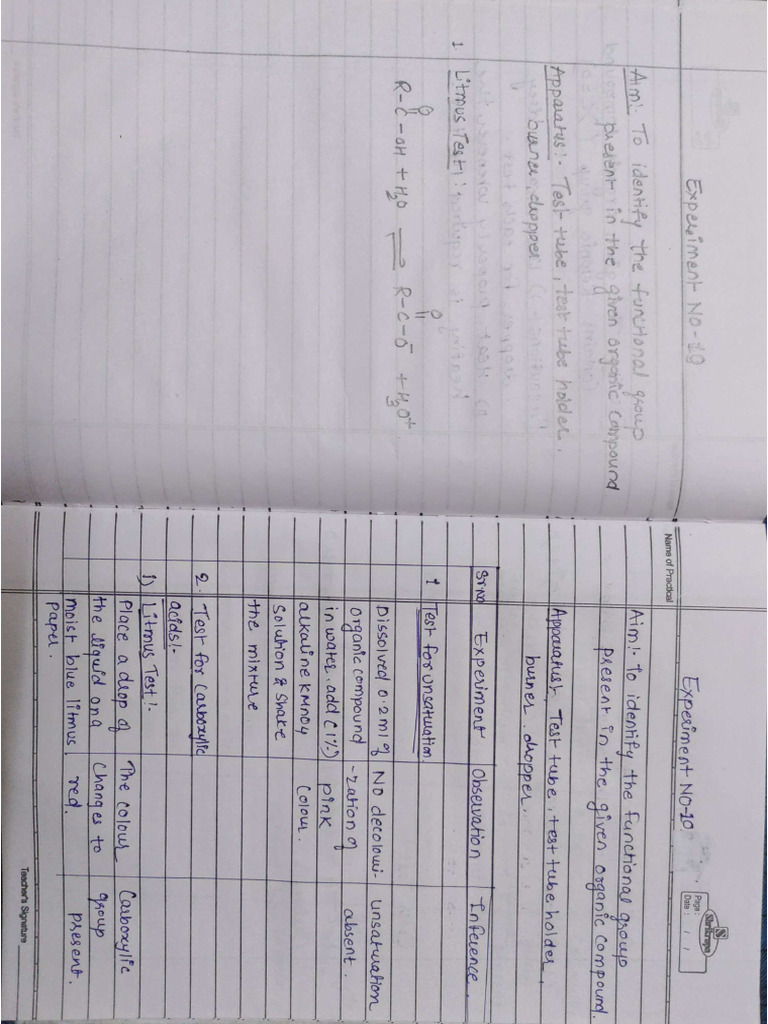 Experiment NO-10
Aim:- To identify the functional group
present in the given organic compound
Apparatus:- Test tube, test tube holder,
burner, dropper
1 Litmus Test:
O O
R-C-OH + H2O ⇌ R-C-O⁻ + H3O⁺
Name of Practical
Shrikrupa
Page:
Date: / /
Experiment NO-10
Aim:- To identify the functional group
present in the given organic compound.
Apparatus:- Test tube, test tube holder,
burner, dropper.
Sr.no Experiment Observation Inference.
1 Test for unsaturation
Dissolved 0.2 ml of No decolouri- unsaturation
organic compound -zation of absent.
in water, add (1%) pink
alkaline KMNO4 colour.
solution & shake
the mixture
2. Test for Carboxylic
acids:-
1) Litmus Test:-
Place a drop of The colour Carboxylic
the liquid on a changes to group
moist blue litmus red. present.
paper.
Teacher's Signature